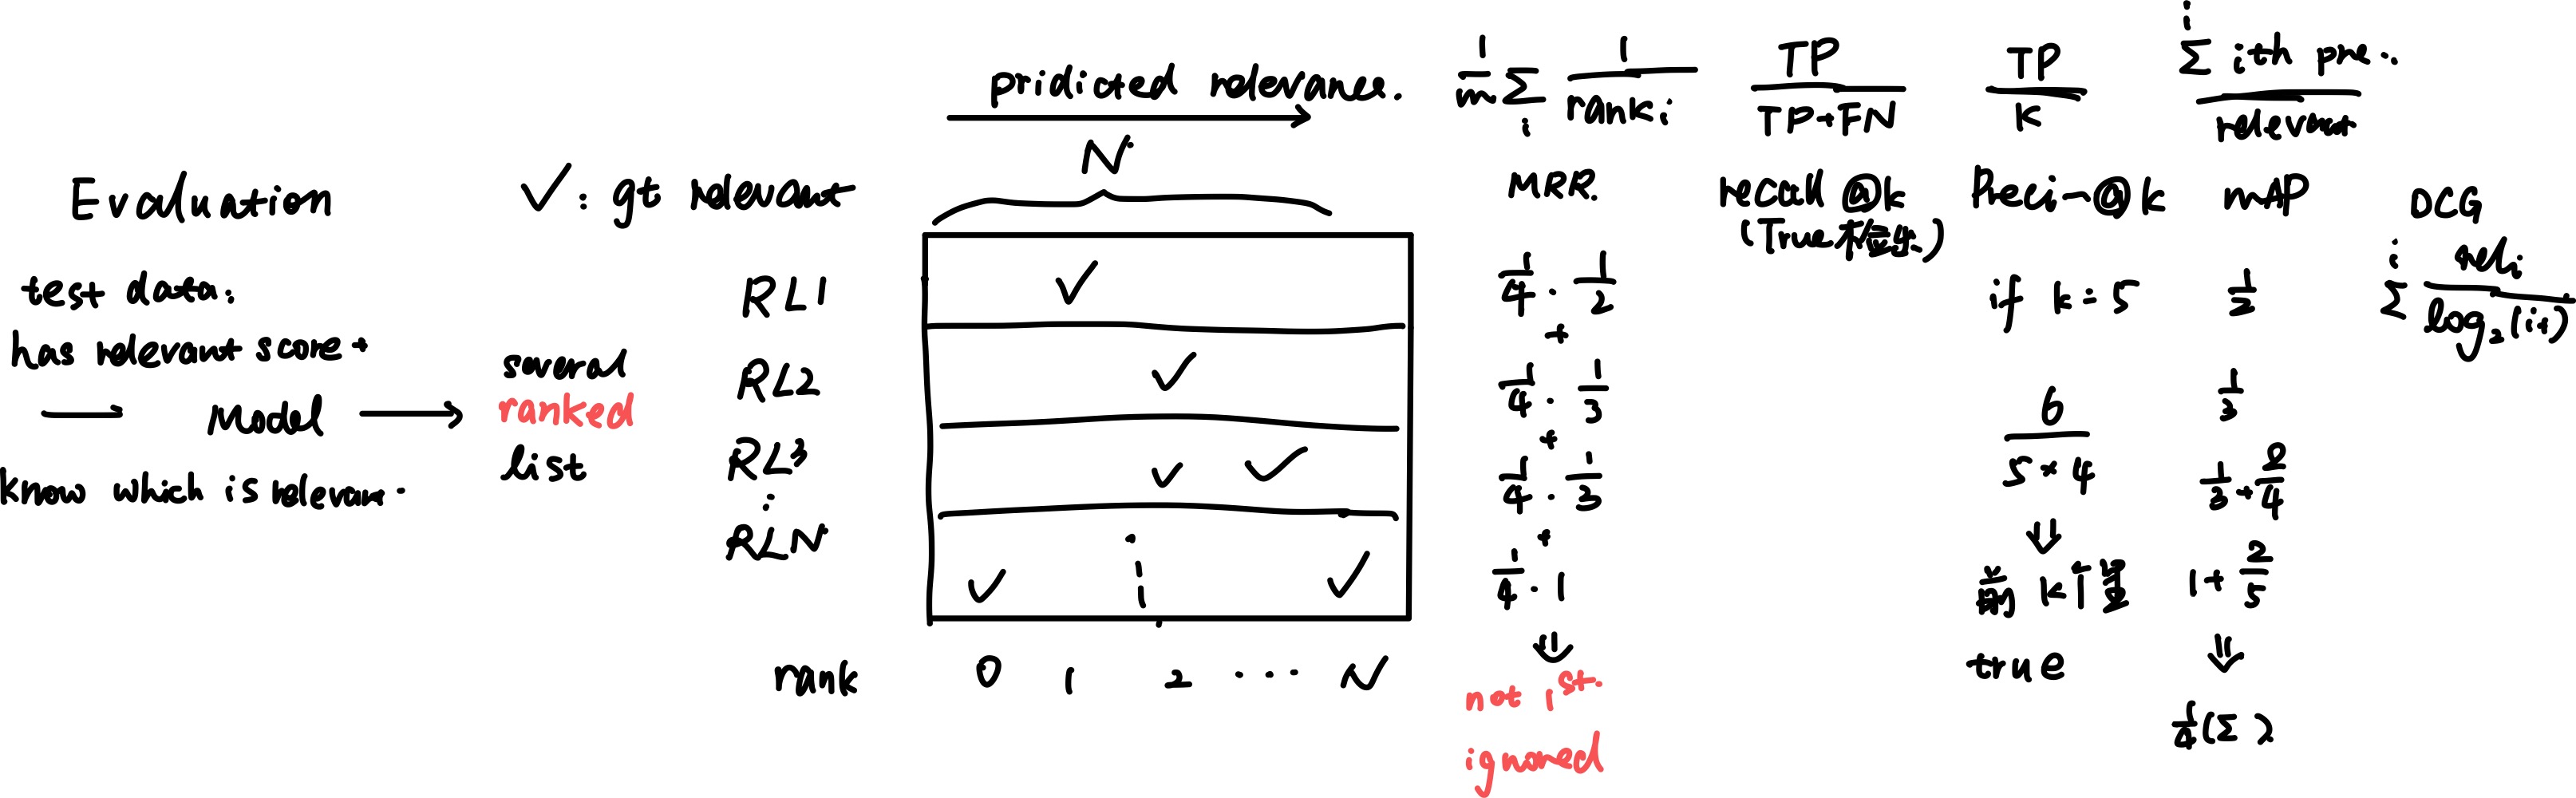 Evaluation
test data.
has relevant score +
Model
know which is relevant.
several
ranked
list
✓: gt relevant
pridicted relevance.
N
RL1
✓
RL2
✓
RL3
✓ ✓
⋮
RLN
✓ ✓
rank 0 1 2 ... N
1/m Σ i 1/rank i
MRR.
1/4 · 1/2
+
1/4 · 1/3
+
1/4 · 1/3
+
1/4 · 1
⇓
not 1st.
ignored
TP/TP+FN
recall @k
TP/K
Preci~@k
if k = 5
6/5×4
⇓
前 k个里
true
i Σ ith pre.
relevant
mAP
1/2
1/3
1/3 + 2/4
1 + 2/5
⇓
1/4(Σ )
DCG
i Σ reli/log₂(i+)